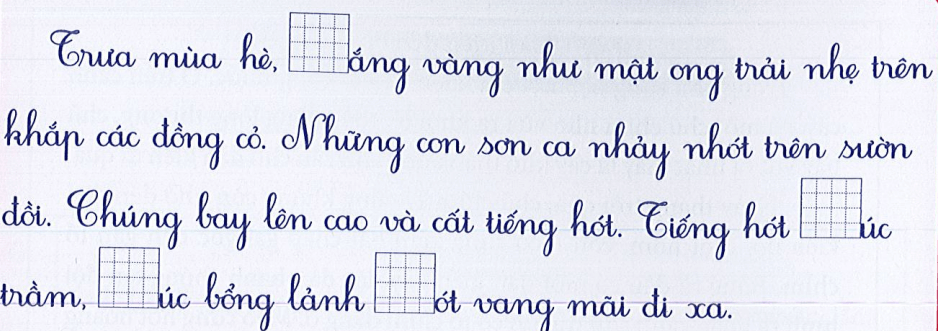 Trưa mùa hè, ắng vàng như mật ong trải nhẹ trên
khắp các đồng cỏ. Những con sơn ca nhảy nhót trên sườn
đồi. Chúng bay lên cao và cất tiếng hót. Tiếng hót úc
trầm, úc bổng lảnh ót vang mãi đi xa.